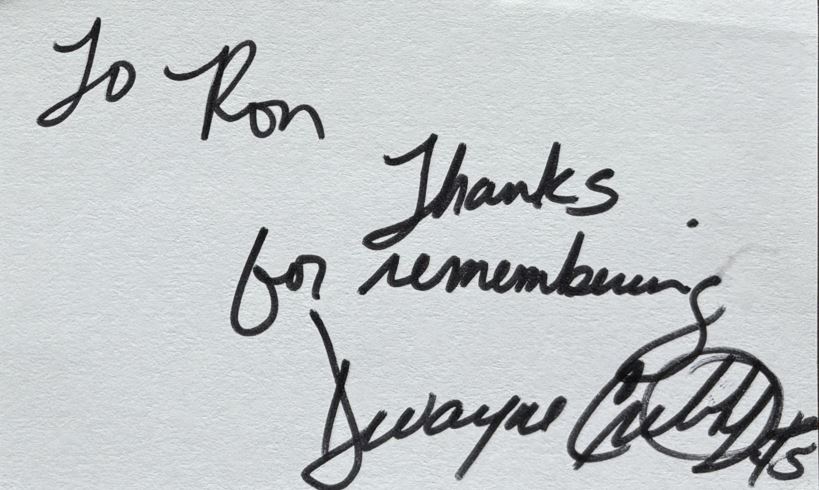 To Ron
Thanks
for remembering
Dwayne